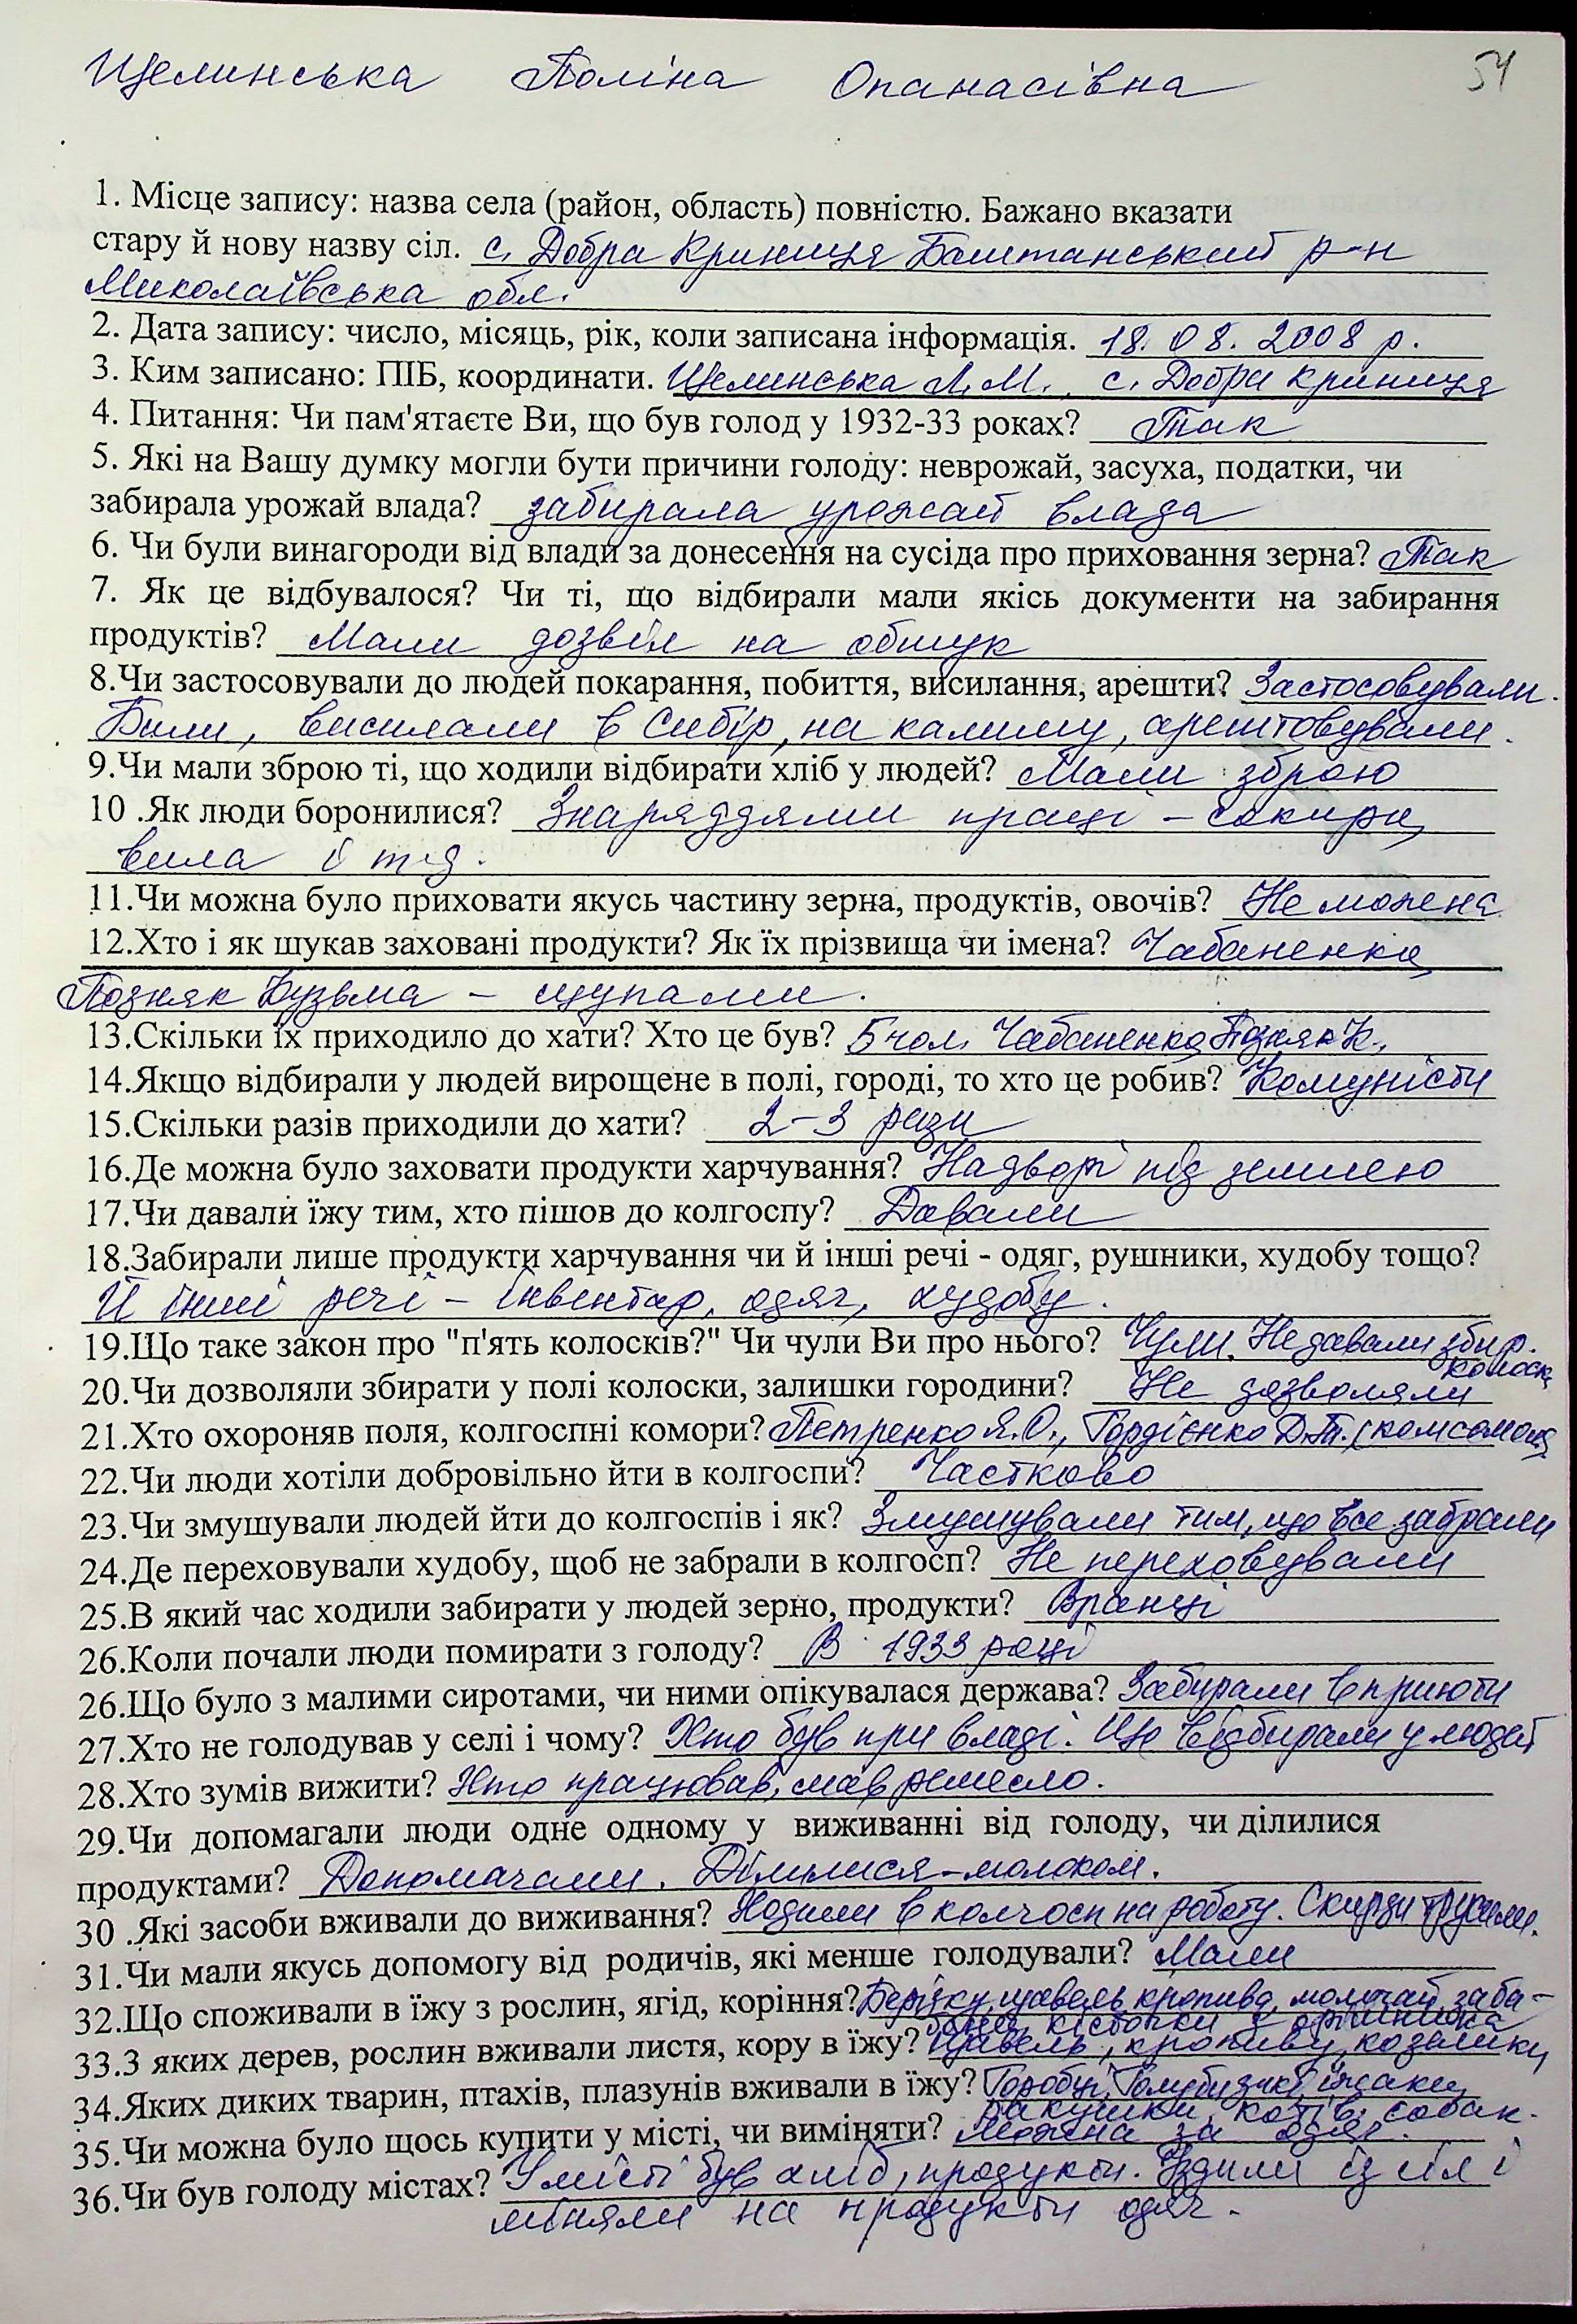 Щелинська Поліна Опанасівна 54
1. Місце запису: назва села (район, область) повністю. Бажано вказати
стару й нову назву сіл. с. Добра Криниця Баштанський р-н
Миколаївська обл.
2. Дата запису: число, місяць, рік, коли записана інформація. 18. 08. 2008 р.
3. Ким записано: ПІБ, координати. Щелинська Л.М., с. Добра Криниця
4. Питання: Чи пам'ятаєте Ви, що був голод у 1932-33 роках? Так
5. Які на Вашу думку могли бути причини голоду: неврожай, засуха, податки, чи
забирала урожай влада? забирала урожай влада
6. Чи були винагороди від влади за донесення на сусіда про приховання зерна? Так
7. Як це відбувалося? Чи ті, що відбирали мали якісь документи на забирання
продуктів? Мали дозвіл на обшук
8.Чи застосовували до людей покарання, побиття, висилання, арешти? Застосовували.
Били, висилали в Сибір, на калиму, арештовували.
9.Чи мали зброю ті, що ходили відбирати хліб у людей? Мали зброю
10 .Як люди боронилися? Знаряддями праці – сокира,
вила і т-д.
11.Чи можна було приховати якусь частину зерна, продуктів, овочів? Не можена
12.Хто і як шукав заховані продукти? Як їх прізвища чи імена? Чабаненко,
Позняк Кузьма – щупами.
13.Скільки їх приходило до хати? Хто це був? 5 чол. Чабаненко, Позняк К.,
14.Якщо відбирали у людей вирощене в полі, городі, то хто це робив? Комуністи
15.Скільки разів приходили до хати? 2–3 рази
16.Де можна було заховати продукти харчування? Надворі під землею
17.Чи давали їжу тим, хто пішов до колгоспу? Давали
18.Забирали лише продукти харчування чи й інші речі - одяг, рушники, худобу тощо?
Й інші речі – інвентар, одяг, худобу.
19.Що таке закон про "п'ять колосків?" Чи чули Ви про нього? Чули. Не давали збир.
колоски
20.Чи дозволяли збирати у полі колоски, залишки городини? Не дозволяли
21.Хто охороняв поля, колгоспні комори? Петренко Я.О., Гордієнко Д.Т. (комсомол)
22.Чи люди хотіли добровільно йти в колгоспи? Частково
23.Чи змушували людей йти до колгоспів і як? Змушували тим, що все забрали
24.Де переховували худобу, щоб не забрали в колгосп? Не переховували
25.В який час ходили забирати у людей зерно, продукти? Вранці
26.Коли почали люди помирати з голоду? В 1933 році
26.Що було з малими сиротами, чи ними опікувалася держава? Забирали в приюти
27.Хто не голодував у селі і чому? Хто був при владі. Що відбирали у людей
28.Хто зумів вижити? Хто працював, мав ремесло.
29.Чи допомагали люди одне одному у виживанні від голоду, чи ділилися
продуктами? Допомагали. Ділилися–молоком.
30 .Які засоби вживали до виживання? Ходили в колгосп на роботу. Скирди трусили.
31.Чи мали якусь допомогу від родичів, які менше голодували? Мали
32.Що споживали в їжу з рослин, ягід, коріння? Берізку, щавель, кропива, молочай,
кісточки з
33.З яких дерев, рослин вживали листя, кору в їжу? Щавель, кропиву, козелики
34.Яких диких тварин, птахів, плазунів вживали в їжу? Горобці, їжаки,
ракушки, котів, собак.
35.Чи можна було щось купити у місті, чи виміняти? Можна за одяг.
36.Чи був голоду містах? У місті був хліб, продукти. Їздили із сіл і
міняли на продукти одяг.